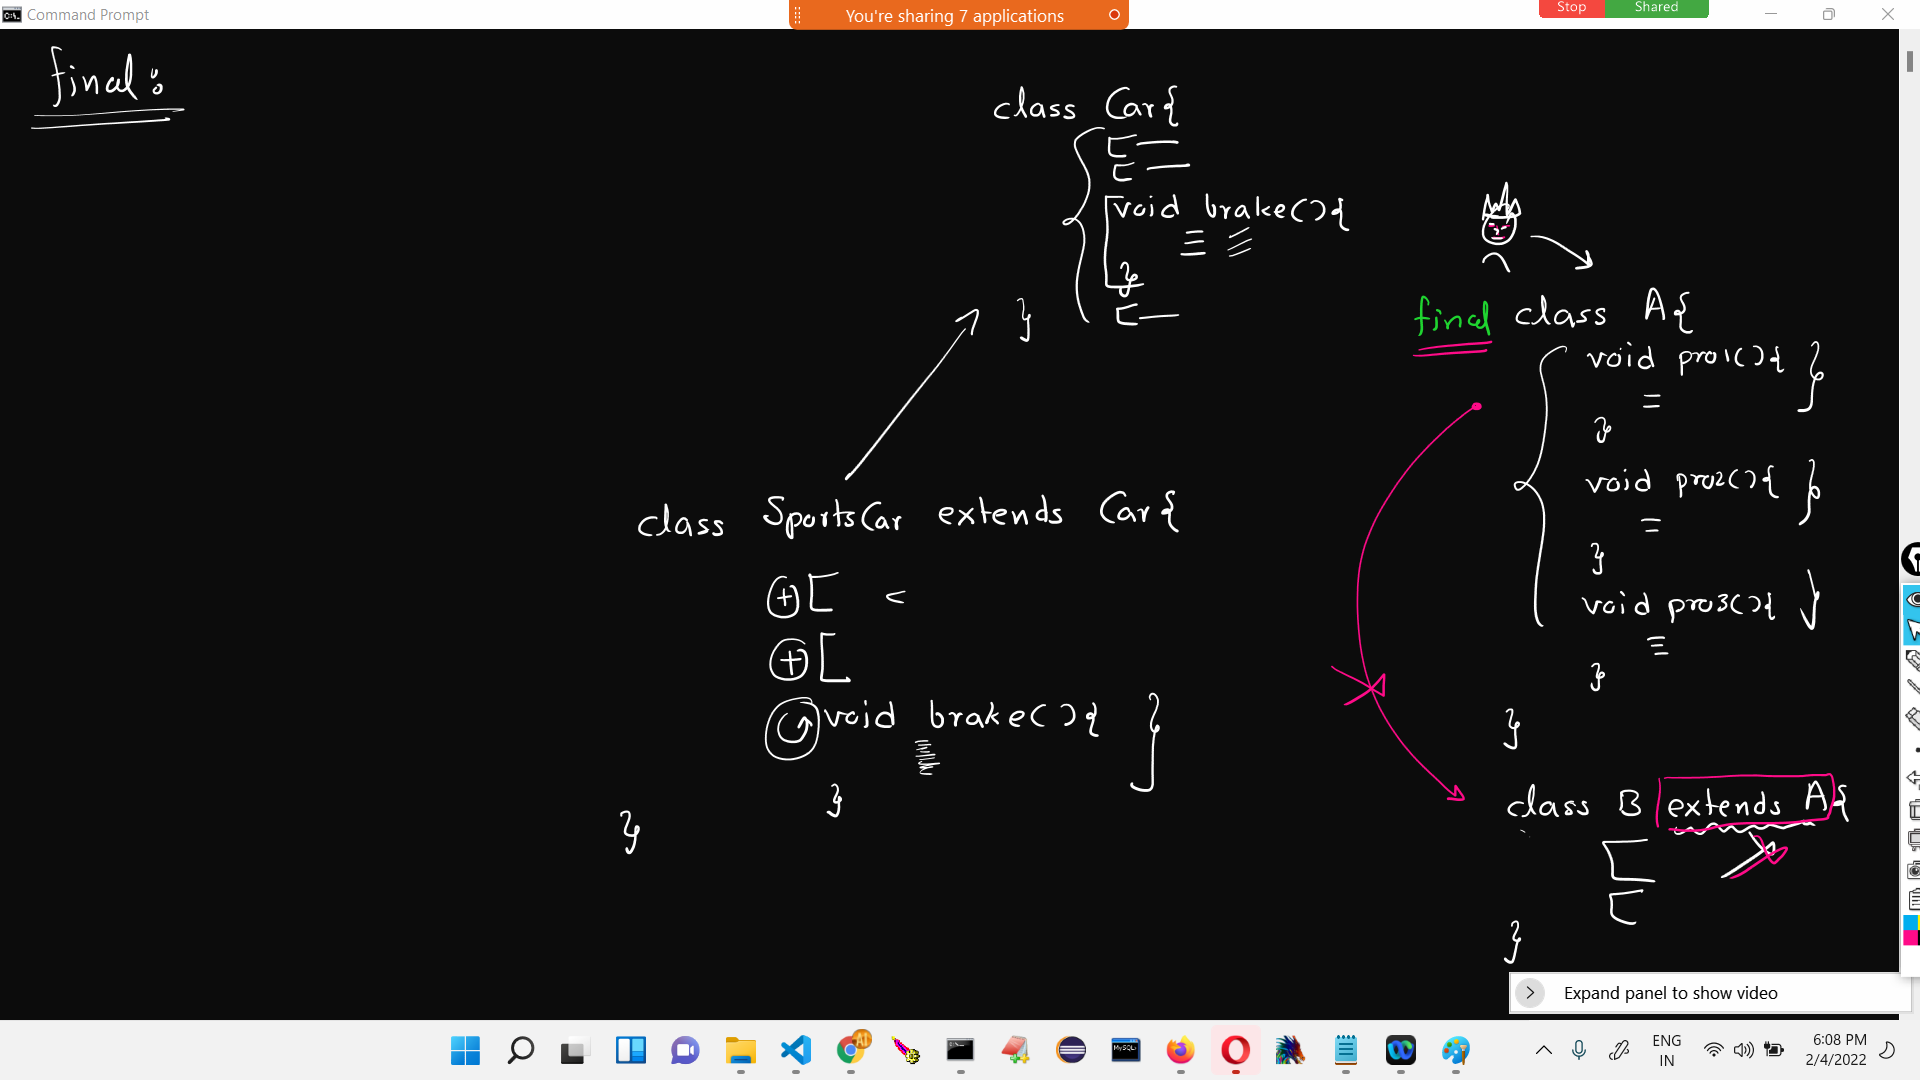 Command Prompt
You're sharing 7 applications
Stop Shared
final:
class Car{
void brake(){
}
}
class SportsCar extends Car{
+
<
+
void brake(){
}
}
final class A{
void pro1(){
=
}
void pro2(){
=
}
void pro3(){
}
}
class B extends A{
}
Expand panel to show video
AI
MySQL
ENG
IN
6:08 PM
2/4/2022